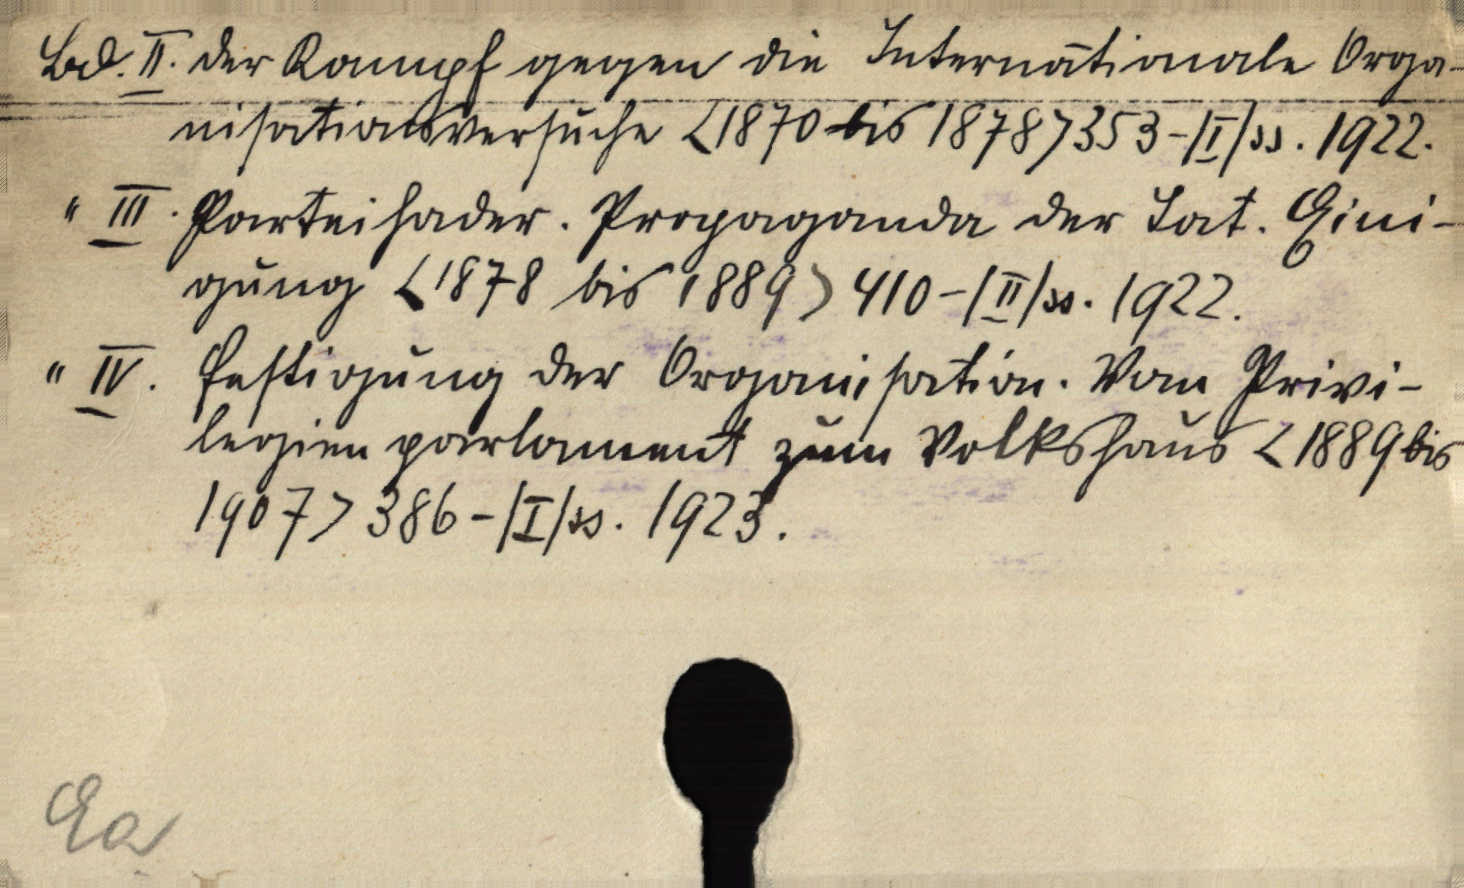 Bd. II. Der Kampf gegen die Internationale Orga-
nisationsversuche <1870 bis 1878> 353-/I/ss. 1922.
" III. Parteihader. Propaganda der Tat. Eini-
gung <1878 bis 1889> 410-/II/ss. 1922.
" IV. Festigung der Organisation. Vom Privi-
legienparlament zum Volkshaus <1889 bis
1907> 386-/I/ss. 1923.
Ea